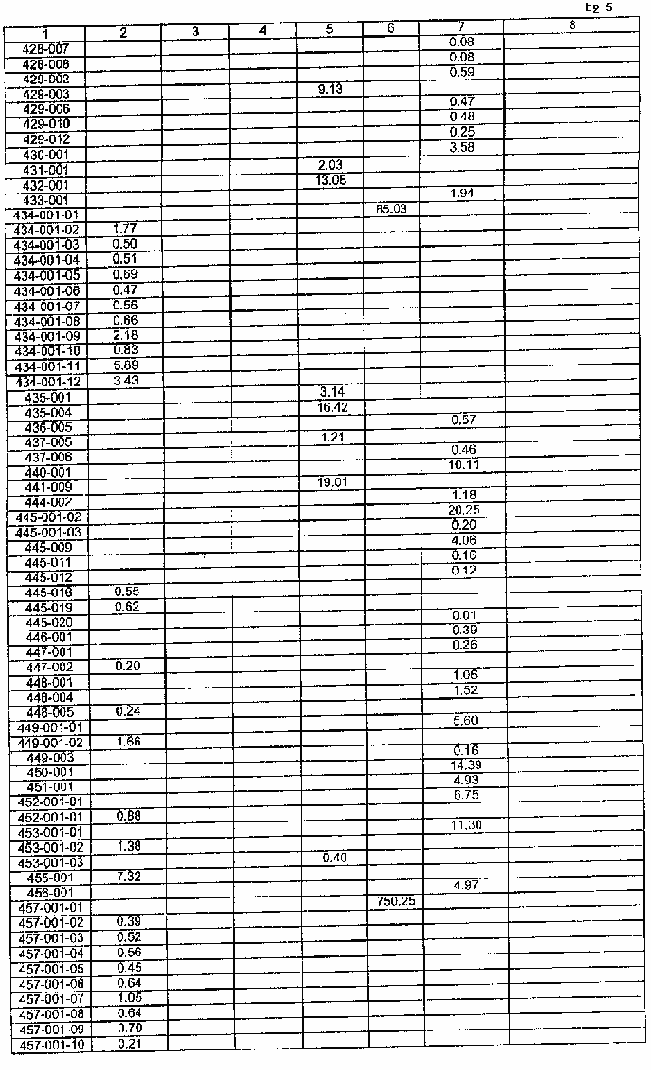 tg 5
1 2 3 4 5 6 7 8
428-007 0.08
428-008 0.08
429-002 0.59
429-003 9.13
429-006 0.47
429-010 0.48
429-012 0.25
430-001 3.58
431-001 2.03
432-001 13.06
433-001 1.94
434-001-01 85.03
434-001-02 1.77
434-001-03 0.50
434-001-04 0.51
434-001-05 0.69
434-001-06 0.47
434-001-07 0.56
434-001-08 0.66
434-001-09 2.18
434-001-10 0.83
434-001-11 5.69
434-001-12 3.43
435-001 3.14
435-004 16.42
436-005 0.57
437-005 1.21
437-006 0.46
440-001 10.11
441-009 19.01
444-002 1.18
445-001-02 20.25
445-001-03 0.20
445-009 4.06
445-011 0.10
445-012 0.12
445-016 0.55
445-019 0.62
445-020 0.01
446-001 0.39
447-001 0.26
447-002 0.20
448-001 1.06
448-004 1.52
448-005 0.24
449-001-01 5.60
449-001-02 1.66
449-003 0.16
450-001 14.39
451-001 4.93
452-001-01 6.75
452-001-01 0.88
453-001-01 11.30
453-001-02 1.38
453-001-03 0.40
455-001 7.32
456-001 4.97
457-001-01 750.25
457-001-02 0.39
457-001-03 0.52
457-001-04 0.56
457-001-05 0.45
457-001-06 0.64
457-001-07 1.05
457-001-08 0.64
457-001-09 0.70
457-001-10 0.21